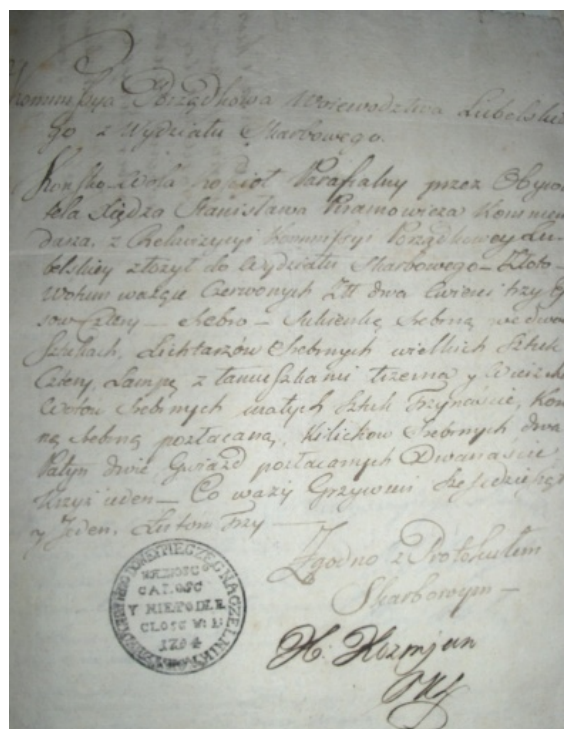 Kommissya Porządkowa Woiewodztwa Lubelskie
go z Wydziału Skarbowego.
Końsko-Wola Kościoł Parafialny przez Obywa
tela Xiędza Stanisława Kommen
darza, z Rekwizycyi Kommissyi Porządkowey Lu-
belskiey złożył do Wydziału Skarbowego - Złoto -
Wotum ważące Czerwonych Złł dwa Cwierci trzy
Cztery - Srebro - Sukienkę Srebrną we dwóch
Sztukach, Lichtarzów Srebrnych wielkich Sztuk
Cztery, Lampę z łancuszkami trzema y
Wotów Srebrnych małych Sztuk Trzynaście, Koro
nę Srebrną pozłacaną, Kilichow Srebrnych dwa
Patyn dwie Gwiazd pozłacanych Dwanaście
Krzyż ieden - Co waży Grzywien Sześćdziesiąt
y Jeden, Lutow Trzy -
Zgodno z Protokułem
Skarbowym -
K. Kozmjan
WOLNOSC
CAŁOSC
Y NIEPODLE
GŁOSC
1794